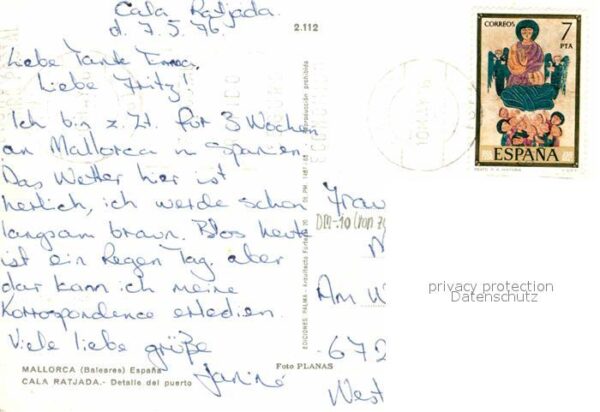 Cala Ratjada.
d. 7.5.76.
2.112
Liebe Tante Emma,
Liebe Fritz!
Ich bin z. Zt. für 3 Wochen
an Mallorca in Spanien.
Das Wetter hier ist
herlich, ich werde schon
langsam braun. Blos heute
ist ein Regen Tag. aber
dar kann ich meine
Korrespondence erledien.
Viele liebe grüße
Janiné
MALLORCA (Baleares) España
CALA RATJADA.- Detalle del puerto
Foto PLANAS
EDICIONES PALMA - Arquitecto Forteza
Reproducción prohibida
CORREOS
7
PTA
ESPAÑA
Frau
DM-.10
Am
672
West
privacy protection
Datenschutz